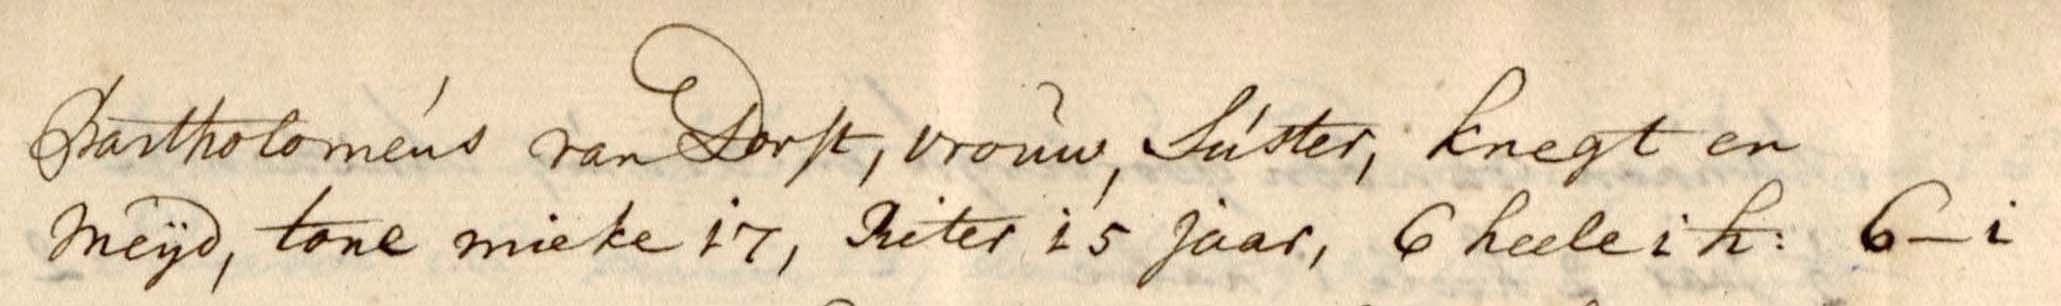 Bartholomeús van Dorst, vrouw, Súster, knegt en
Meÿd, tone mieke 17, Piter 15 jaar, 6 heele i h: 6 – i